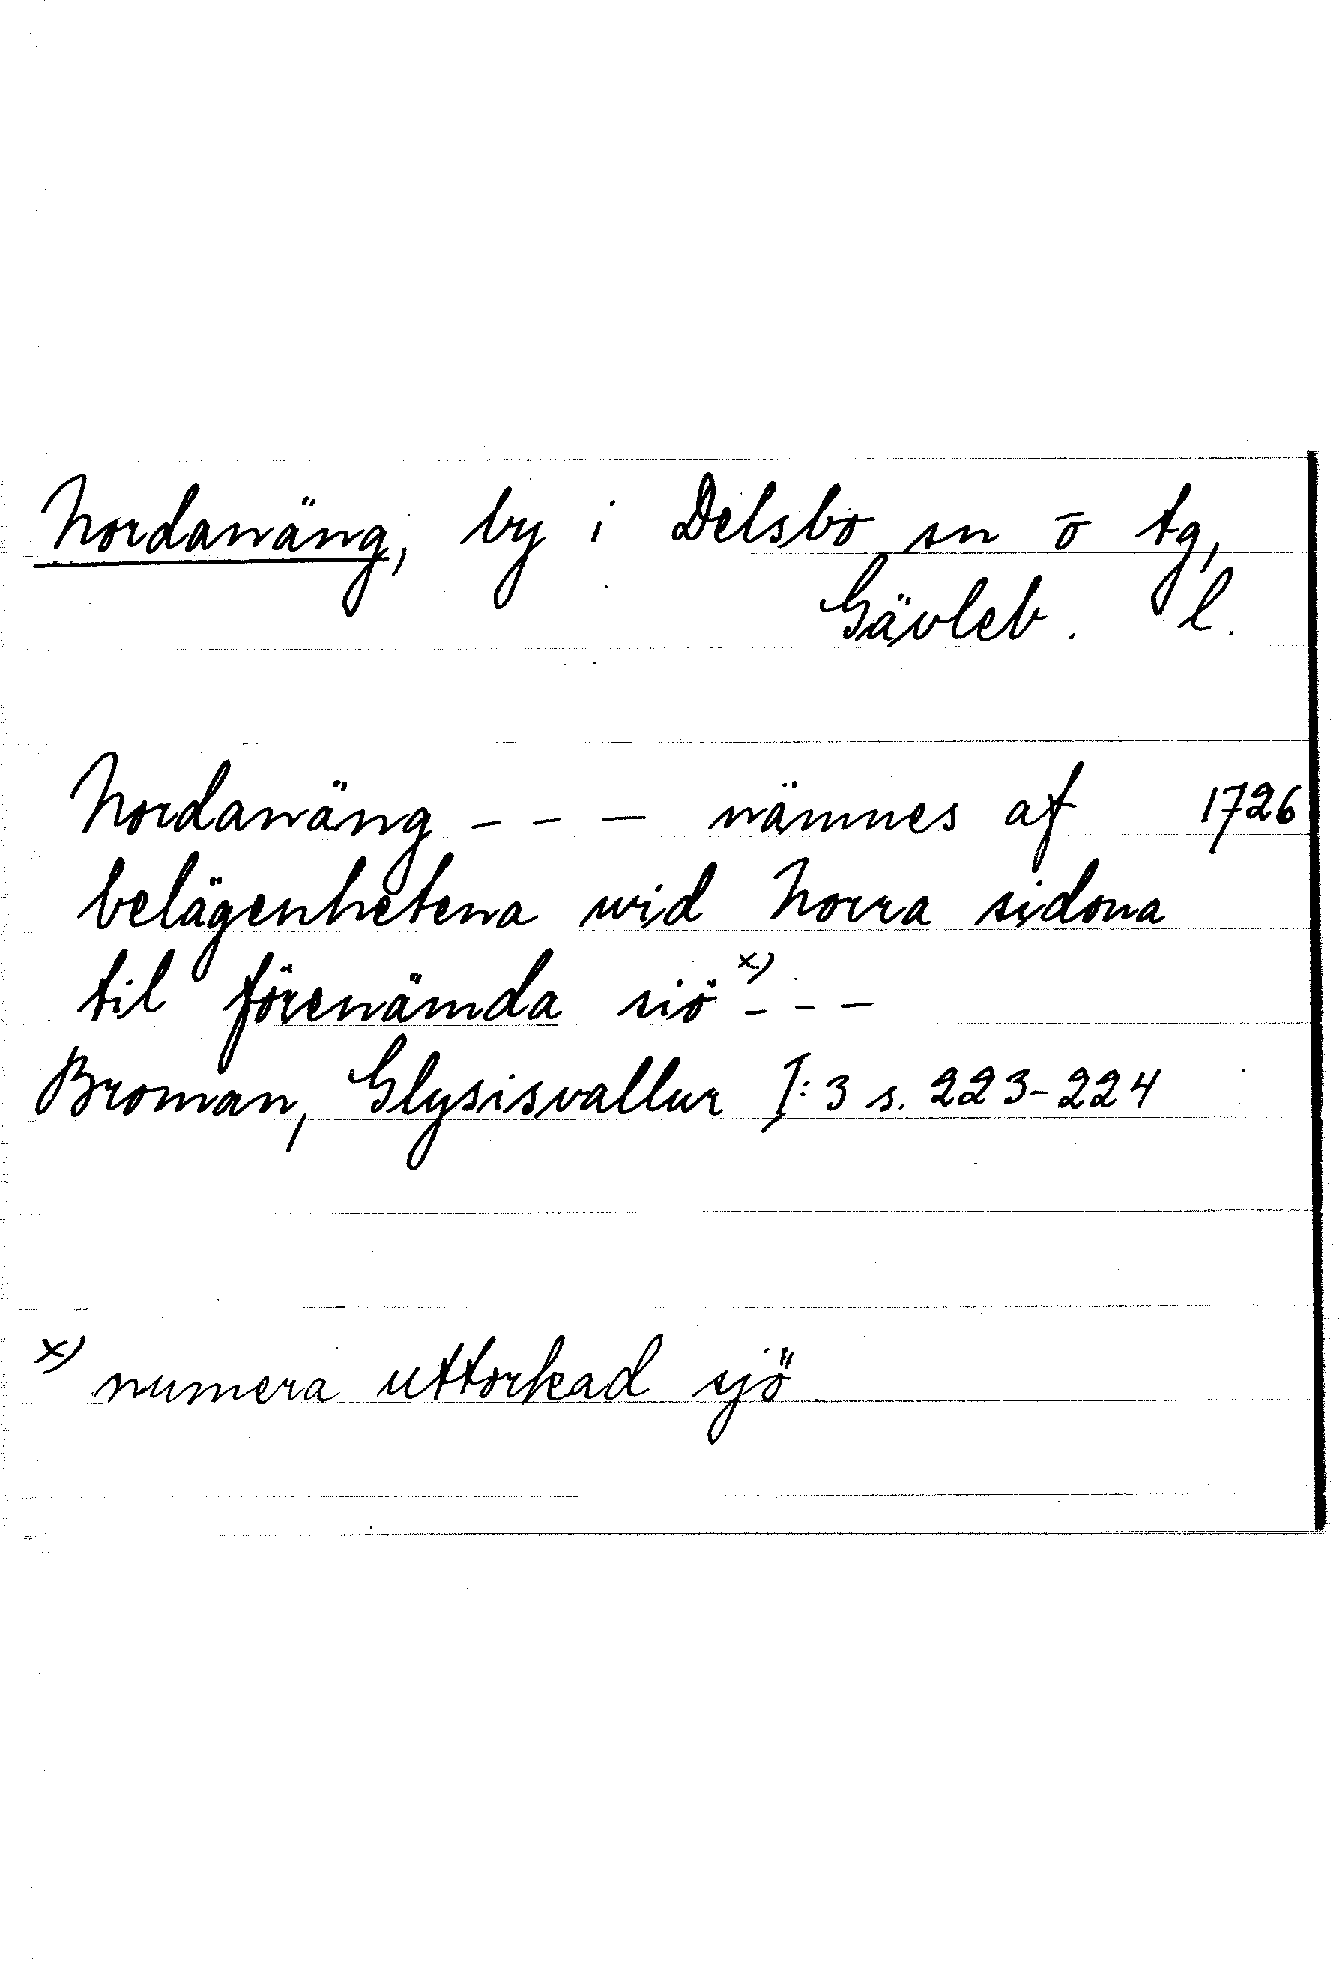 Nordanäng, by i Delsbo sn o tg,
Gävleb. l.
Nordanäng - - - nämnes af 1726
belägenhetena wid Norra sidona
til förenämda siö x) - - -
Broman, Glysisvallur I:3 s. 223-224
x) numera uttorkad sjö